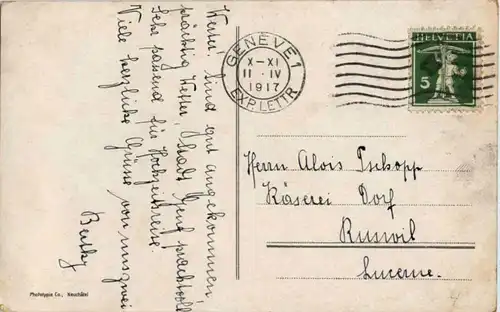 Werter, sind gut angekommen,
prächtig Wetter, Stadt Genf prachtvoll
Sehr passend für Hochzeitsreise.
Viele herzliche Grüsse von uns zwei
Berthy
GENÈVE 1
X-XI
11·IV
1917
EXP. LETTR.
HELVETIA
5
Herrn Alois Tschopp
Käserei Dorf
Ruswil
Lucerne.
Phototypie Co., Neuchâtel